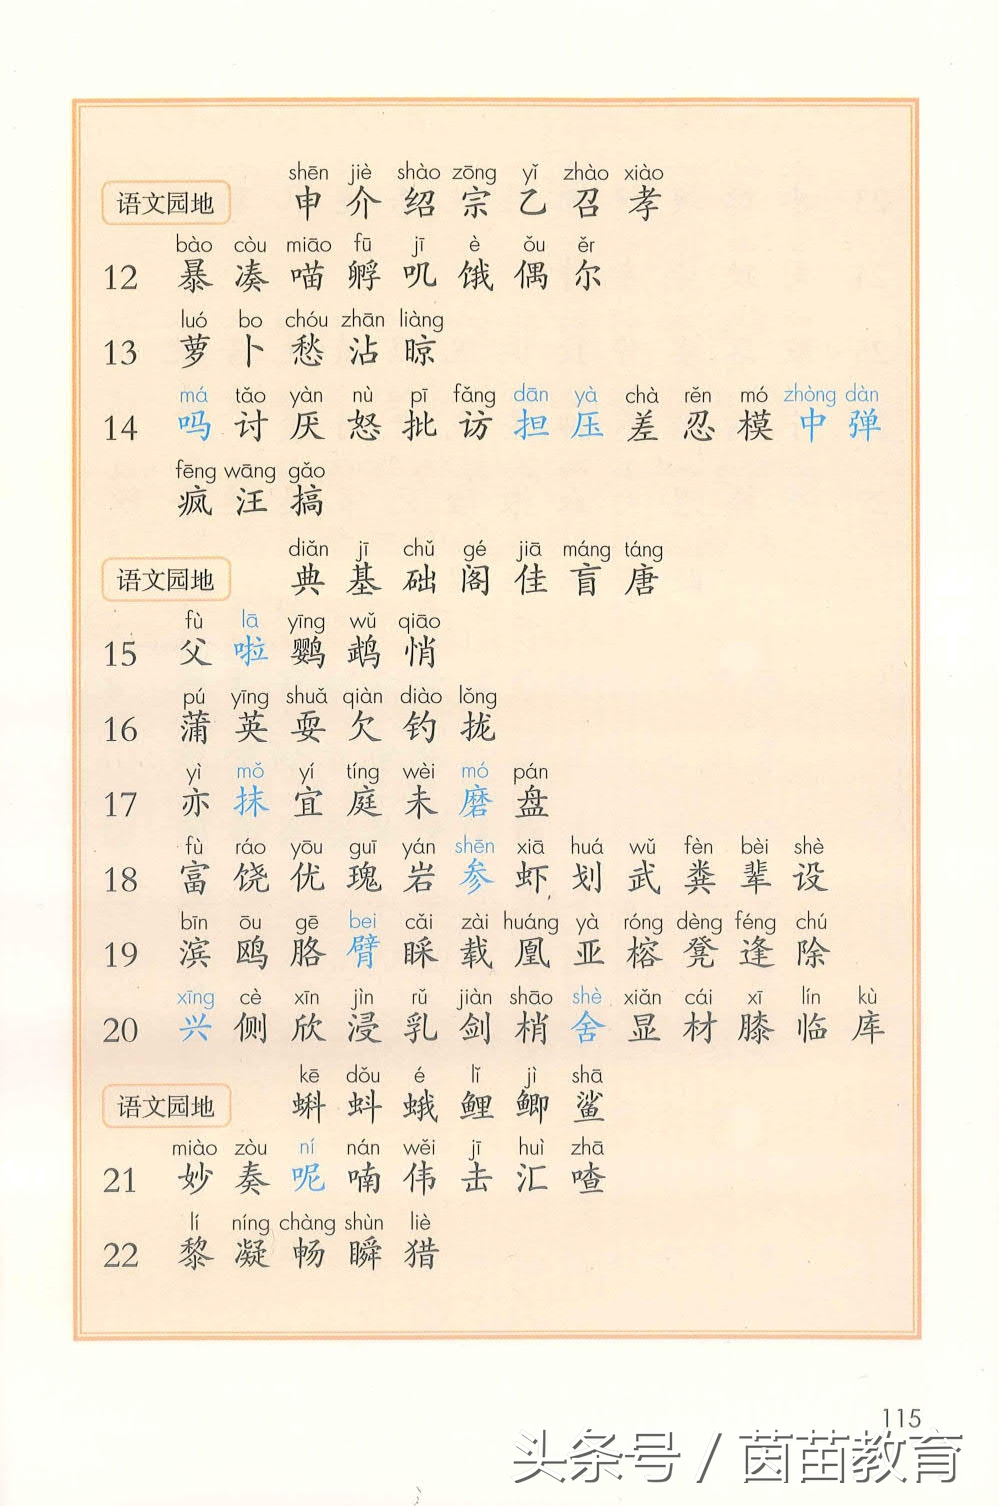 shēn jiè shào zōng yǐ zhào xiào
语文园地 申 介 绍 宗 乙 召 孝
bào còu miāo fū jī è ǒu ěr
12 暴 凑 喵 孵 叽 饿 偶 尔
luó bo chóu zhān liàng
13 萝 卜 愁 沾 晾
má tǎo yàn nù pī fǎng dān yà chà rěn mó zhòng dàn
14 吗 讨 厌 怒 批 访 担 压 差 忍 模 中 弹
fēng wāng gǎo
疯 汪 搞
diǎn jī chǔ gé jiā máng táng
语文园地 典 基 础 阁 佳 盲 唐
fù lā yīng wǔ qiāo
15 父 啦 鹦 鹉 悄
pú yīng shuǎ qiàn diào lǒng
16 蒲 英 耍 欠 钓 拢
yì mǒ yí tíng wèi mó pán
17 亦 抹 宜 庭 未 磨 盘
fù ráo yōu guī yán shēn xiā huá wǔ fèn bèi shè
18 富 饶 优 瑰 岩 参 虾 划 武 粪 辈 设
bīn ōu gē bei cǎi zài huáng yà róng dèng féng chú
19 滨 鸥 胳 臂 睬 载 凰 亚 榕 凳 逢 除
xīng cè xīn jìn rǔ jiàn shāo shè xiǎn cái xī lín kù
20 兴 侧 欣 浸 乳 剑 梢 舍 显 材 膝 临 库
kē dǒu é lǐ jì shā
语文园地 蝌 蚪 蛾 鲤 鲫 鲨
miào zòu ní nán wěi jī huì zhā
21 妙 奏 呢 喃 伟 击 汇 喳
lí níng chàng shùn liè
22 黎 凝 畅 瞬 猎
115
头条号 / 茵苗教育